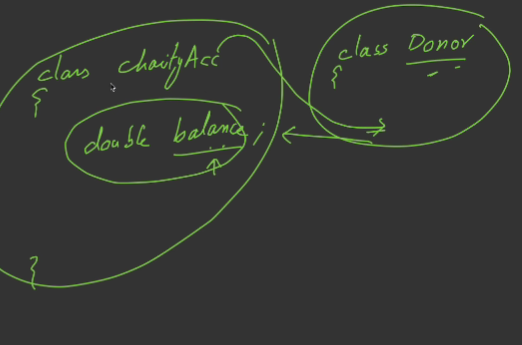 class charityAcc
{
double balance;
}
class Donor
{